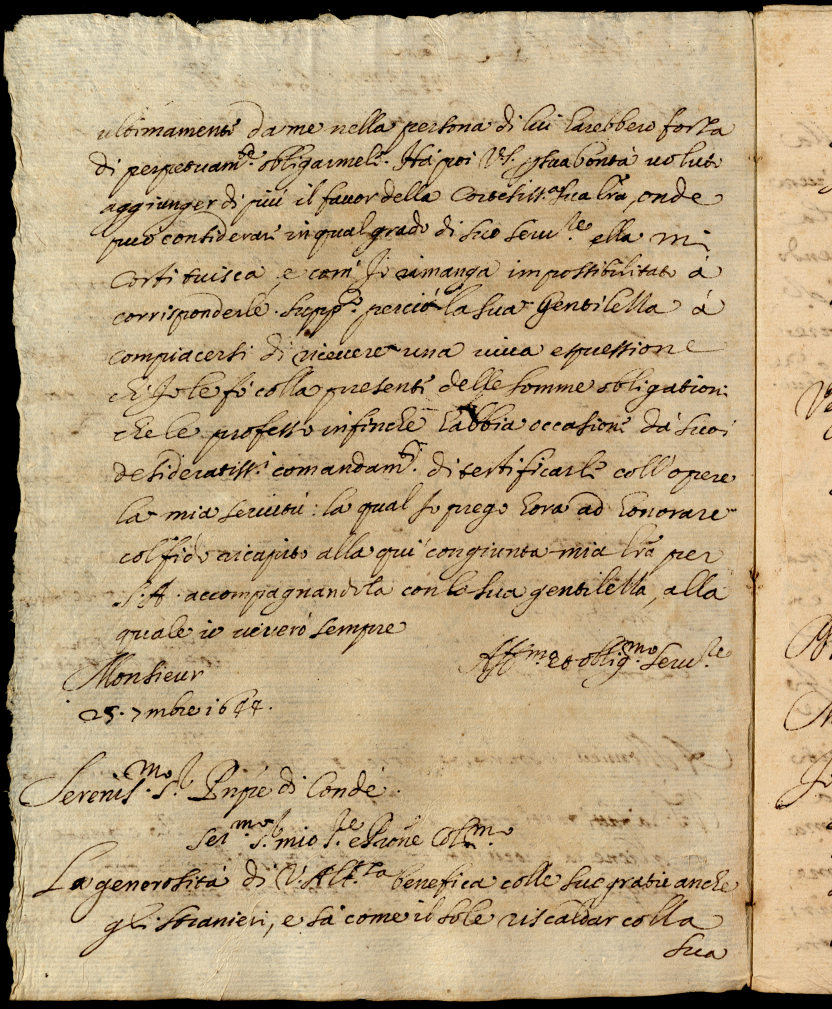 ultimamente da me nella persona di lui sarebbero forza
di perpetuam.te obligarmele. Hà poi V.S. p sua bontà voluto
aggiunger di più il favor della Cortesiss.a sua lrã, onde
può considerare in qual grado di suo Serv.re ella mi
costituisca, e com' Io rimanga impossibilitato à
corrisponderle. Supp.co perciò la sua Gentilezza à
compiacersi di ricevere una viva espressione
ch'Io le fò colla presente delle somme obligationi
che le professo infinche habbia occasione da suoi
desideratiss.i comandam.ti di certificarle coll'opere
la mia servitù: la qual Io prego hora ad honorare
col fido ricapito alla qui congiunta mia lrã per
S.A. accompagnandola con la sua gentilezza, alla
quale io viverò sempre
Aff.mo et oblig.mo Serv.re
Monsieur
25. 7mbre 1644.
Serenis.mo S.r Prñpe di Condè.
Ser.mo S.r mio S.re e Prone Col.mo
La generosità di V. Alt.za benefica colle sue gratie anche
gli stranieri, e sà come il sole riscaldar colla
sua